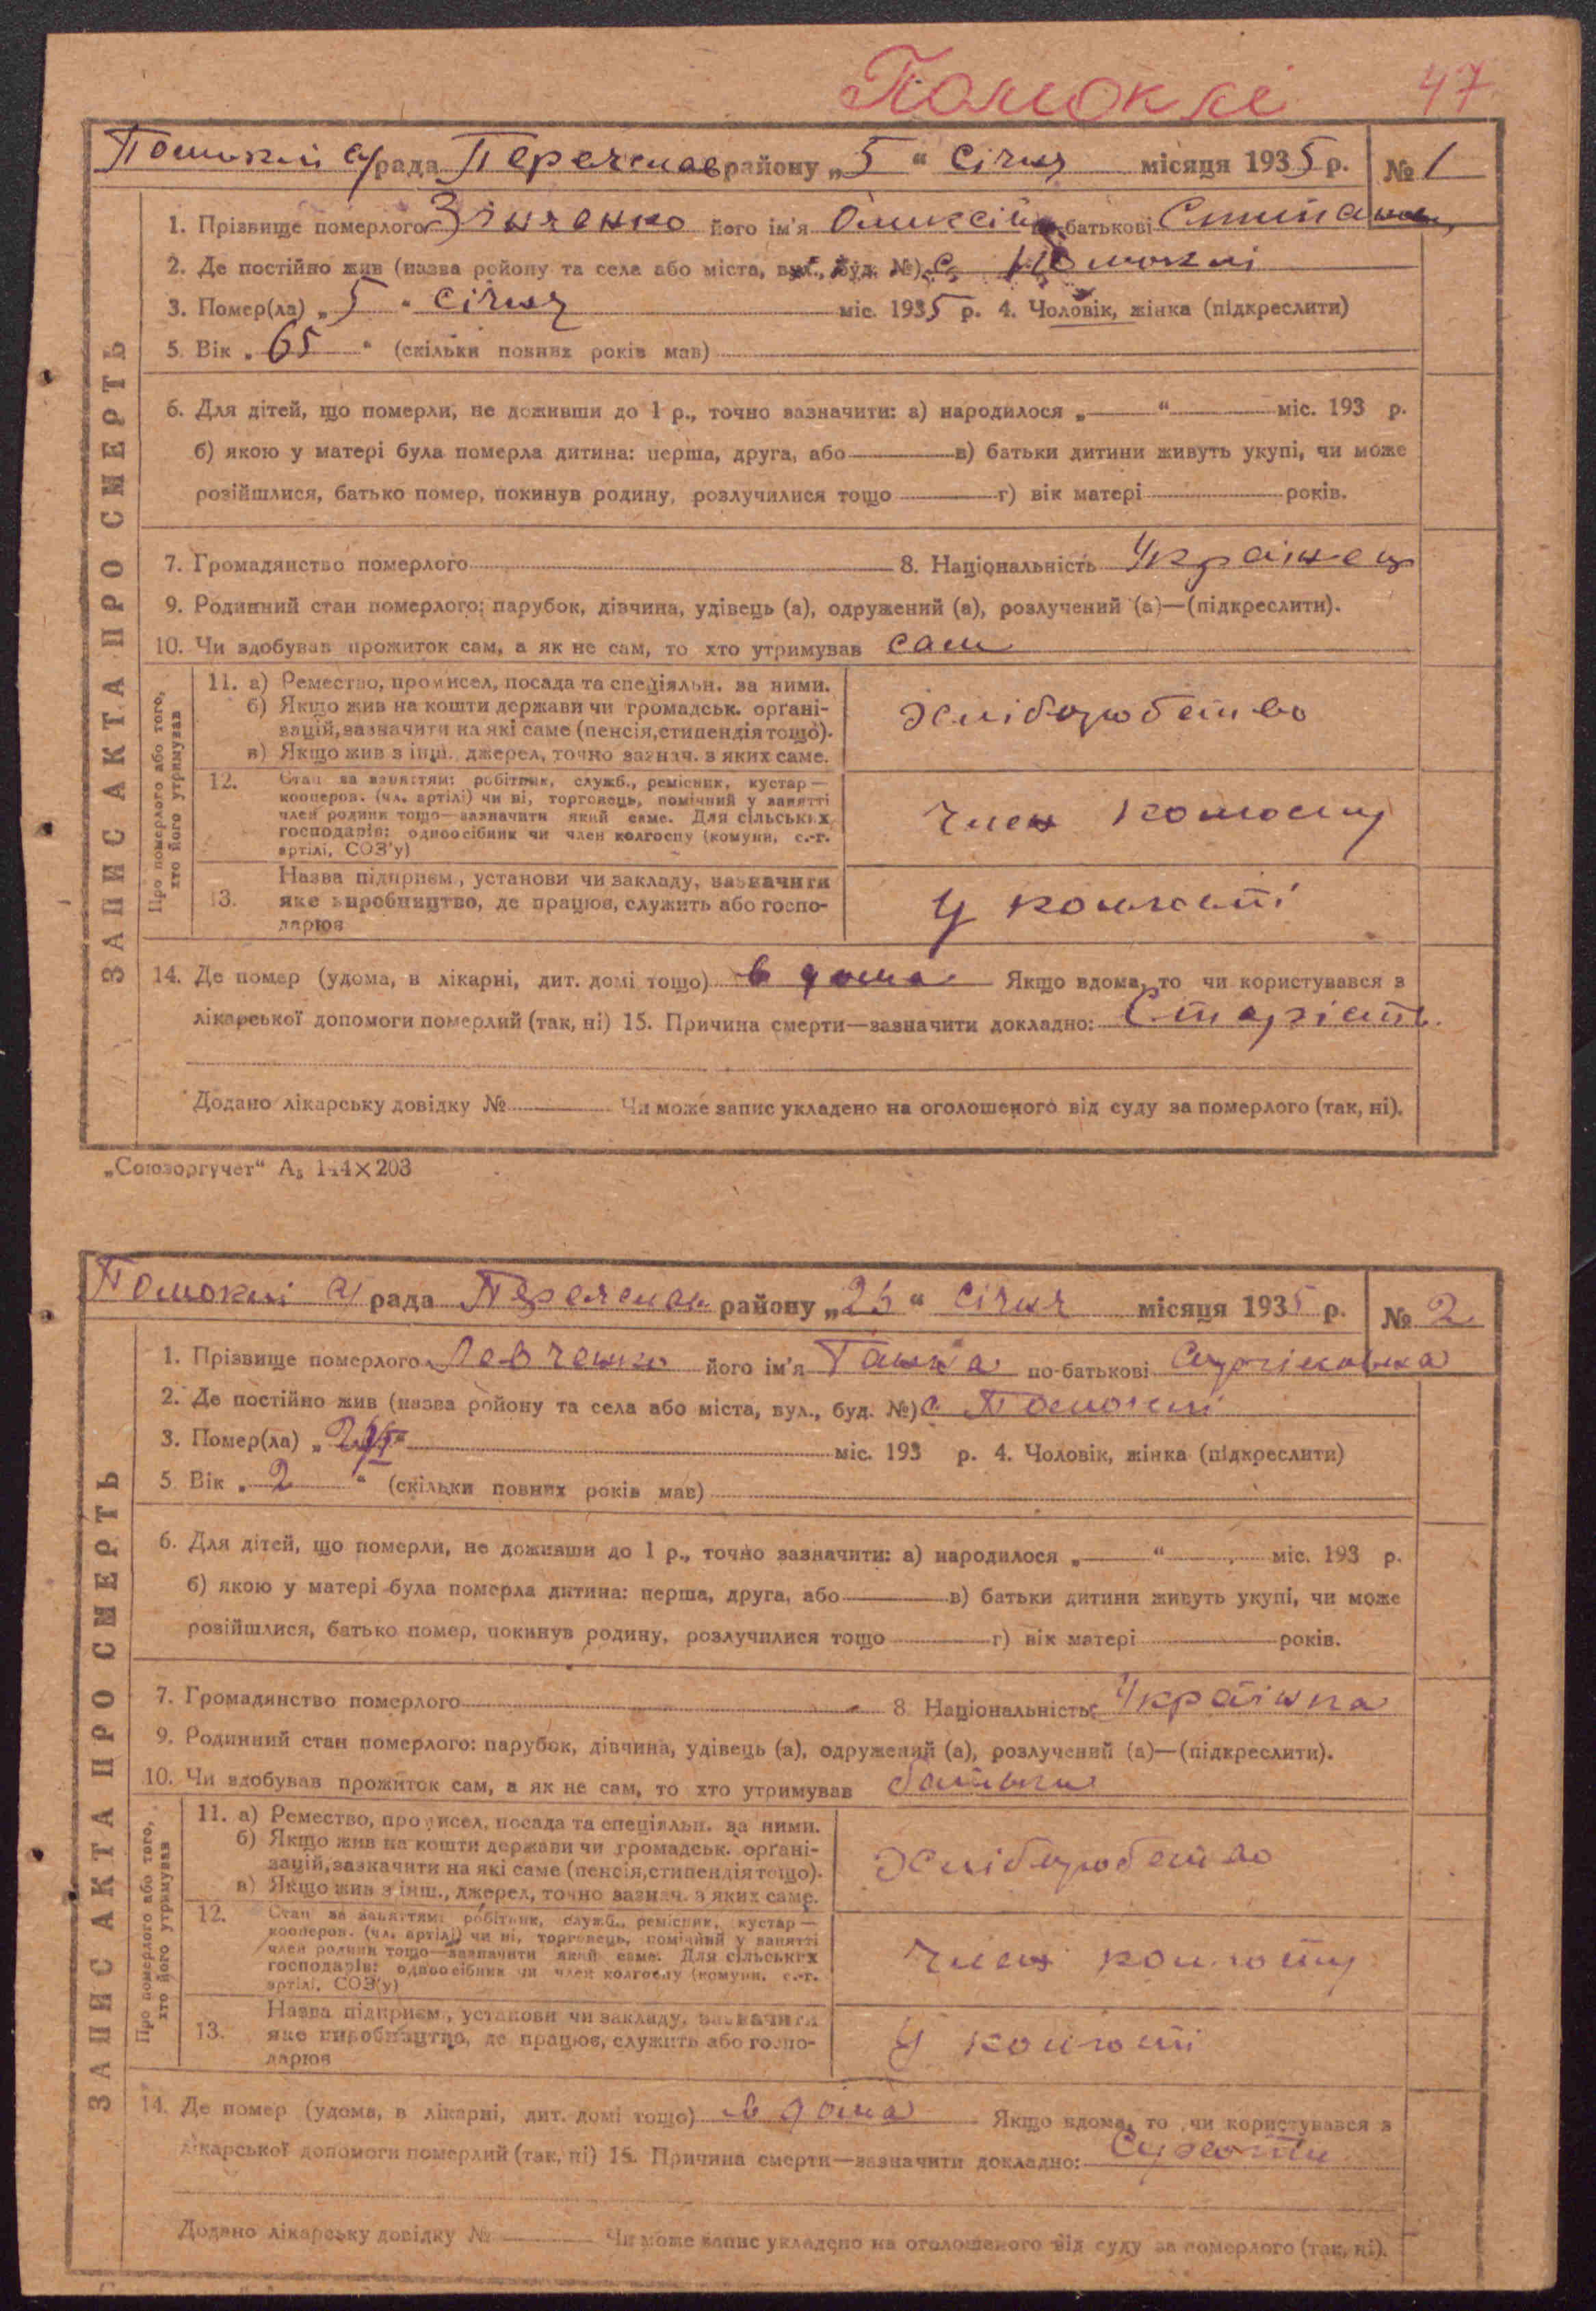 Помоклі 47
Помоклі с/рада Переяслав району „5“ січня місяця 1935 р. № 1
1. Прізвище померлого Зінченко його ім'я Олексій по-батькові
2. Де постійно жив (назва ройону та села або міста, вул., буд. №) с. Помоклі
3. Помер(ла) „5“ січня міс. 1935 р. 4. Чоловік, жінка (підкреслити)
5. Вік „65“ (скільки повних років мав)
6. Для дітей, що померли, не доживши до 1 р., точно зазначити: а) народилося „ “ міс. 193 р.
б) якою у матері була померла дитина: перша, друга, або в) батьки дитини живуть укупі, чи може
розійшлися, батько помер, покинув родину, розлучилися тощо г) вік матері років.
7. Громадянство померлого 8. Національність Українец
9. Родинний стан померлого: парубок, дівчина, удівець (а), одружений (а), розлучений (а)—(підкреслити).
10. Чи здобував прожиток сам, а як не сам, то хто утримував сам
Про померлого або того, хто його утримував
11. а) Ремество, промисел, посада та спеціяльн. за ними.
б) Якщо жив на кошти держави чи громадськ. орґані-
зацій, зазначити на які саме (пенсія, стипендія тощо).
в) Якщо жив з інш. джерел, точно зазнач. з яких саме.
хліборобство
12. Стан за заняттям: робітник, служб., ремісник, кустар—
кооперов. (чл. артілі) чи ні, торговець, помічний у занятті
член родини тощо—зазначити який саме. Для сільських
господарів: одноосібник чи член колгоспу (комуни, с.-г.
артілі, СОЗ'у)
член
13. Назва підприєм., установи чи закладу, зазначити
яке виробництво, де працює, служить або госпо-
дарює
у
14. Де помер (удома, в лікарні, дит. домі тощо) в дома Якщо вдома, то чи користувався з
лікарської допомоги померлий (так, ні) 15. Причина смерти—зазначити докладно: Старість
Додано лікарську довідку № Чи може запис укладено на оголошеного від суду за померлого (так, ні).
ЗАПИС АКТА ПРО СМЕРТЬ
„Союзоргучет“ А₅ 144×203
Помоклі с/рада Переяслав району „25“ січня місяця 1935 р. № 2
1. Прізвище померлого Левченко його ім'я Ганна по-батькові
2. Де постійно жив (назва ройону та села або міста, вул., буд. №) с Помоклі
3. Помер(ла) „ міс. 193 р. 4. Чоловік, жінка (підкреслити)
5. Вік „2“ (скільки повних років мав)
6. Для дітей, що померли, не доживши до 1 р., точно зазначити: а) народилося „ “ міс. 193 р.
б) якою у матері була померла дитина: перша, друга, або в) батьки дитини живуть укупі, чи може
розійшлися, батько помер, покинув родину, розлучилися тощо г) вік матері років.
7. Громадянство померлого 8. Національність Українка
9. Родинний стан померлого: парубок, дівчина, удівець (а), одружений (а), розлучений (а)—(підкреслити).
10. Чи здобував прожиток сам, а як не сам, то хто утримував батьки
Про померлого або того, хто його утримував
11. а) Ремество, промисел, посада та спеціяльн. за ними.
б) Якщо жив на кошти держави чи громадськ. орґані-
зацій, зазначити на які саме (пенсія, стипендія тощо).
в) Якщо жив з інш., джерел, точно зазнач. з яких саме.
хліборобство
12. Стан за заняттям: робітник, служб., ремісник, кустар—
кооперов. (чл. артілі) чи ні, торговець, помічний у занятті
член родини тощо—зазначити який саме. Для сільських
господарів: одноосібник чи член колгоспу (комуни, с.-г.
артілі, СОЗ'у)
член
13. Назва підприєм., установи чи закладу, зазначити
яке виробництво, де працює, служить або госпо-
дарює
у
14. Де помер (удома, в лікарні, дит. домі тощо) в дома Якщо вдома, то чи користувався з
лікарської допомоги померлий (так, ні) 15. Причина смерти—зазначити докладно: Сухоти
Додано лікарську довідку № Чи може запис укладено на оголошеного від суду за померлого (так, ні).
ЗАПИС АКТА ПРО СМЕРТЬ